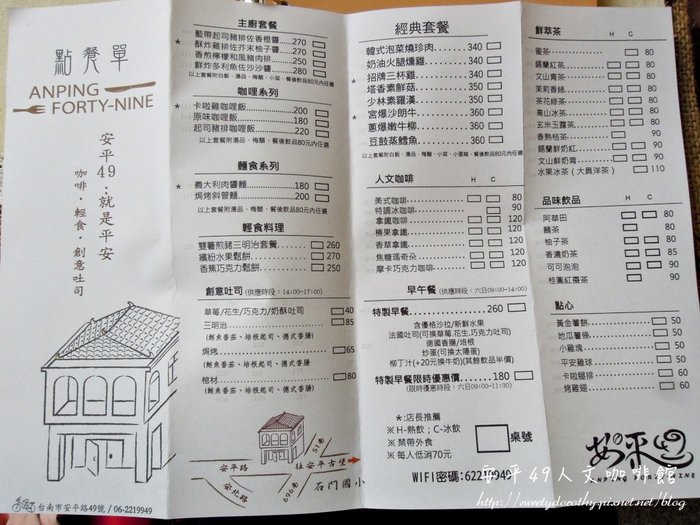 點餐單
ANPING
FORTY-NINE
安平49：就是平安
咖啡・輕食・創意吐司
台南市安平路49號 / 06-2219949
主廚套餐
藍帶起司豬排佐香橙醬 270
酥炸雞排佐芥末柚子醬 270
香煎檸檬和風豬肉排 250
鮮炸多利魚佐沙沙醬 280
以上套餐附白飯、湯品、梅醋、小菜、餐後飲品80元內任選
咖哩系列
* 卡啦雞咖哩飯 200
原味咖哩飯 180
起司豬排咖哩飯 220
以上套餐附湯品、梅醋、餐後飲品80元內任選
麵食系列
* 義大利肉醬麵 180
焗烤斜管麵 200
以上套餐附湯品、梅醋、餐後飲品80元內任選
輕食料理
雙薯煎豬三明治套餐 260
繽紛水果鬆餅 270
香蕉巧克力鬆餅 250
創意吐司 (供應時段：14:00~17:00)
草莓/花生/巧克力/奶酥吐司 40
三明治 85
(鮪魚番茄、培根起司、德式香腸)
焗烤 65
(鮪魚番茄、培根起司、德式香腸)
棺材 80
(鮪魚番茄、培根起司、德式香腸)
安平路
往安平古堡
安北路
石門國小
經典套餐
* 韓式泡菜燒珍肉 340
奶油火腿燻雞 340
* 招牌三杯雞 360
塔香素鮮菇 360
少林素羅漢 360
* 宮爆沙朗牛 360
* 蔥爆嫩牛柳 360
豆鼓蒸鱈魚 360
以上套餐附白飯、湯品、梅醋、小菜、小蛋糕、餐後飲品80元內任選
人文咖啡 H C
美式咖啡 80
特調冰咖啡 90
拿鐵咖啡 120
榛果拿鐵 120
香草拿鐵 120
焦糖瑪奇朵 120
摩卡巧克力咖啡 120
早午餐 (供應時段：六日09:00~14:00)
特製早餐 260
含優格沙拉/新鮮水果
法國吐司(可換草莓,花生,巧克力吐司)
德國香腸/培根
炒蛋(可換太陽蛋)
柳丁汁(+20元換牛奶)(其餘飲品半價)
特製早餐限時優惠價 180
(供應時段：六日09:00~11:30)
*:店長推薦
※H-熱飲；C-冰飲
※禁帶外食
※每人低消70元
桌號
WIFI密碼:62219949
鮮萃茶 H C
蜜茶 80
錫蘭紅茶 80
文山青茶 80
茉莉香綠 80
茶花綠茶 80
高山冰茶 80
玄米玉露茶 80
香熱桔茶 90
錫蘭鮮奶紅 90
文山鮮奶青 90
水果冰茶 (大員洋茶) 110
品味飲品 H C
阿華田 80
麵茶 80
柚子茶 80
香濃奶茶 80
可可泡泡 90
桂圓紅棗茶 90
點心
黃金薯餅 50
地瓜薯條 50
小雞塊 50
平安雞球 50
卡啦腿排 60
烤雞翅 60
安平49人文咖啡館
http://sweetydorothy.pixnet.net/blog